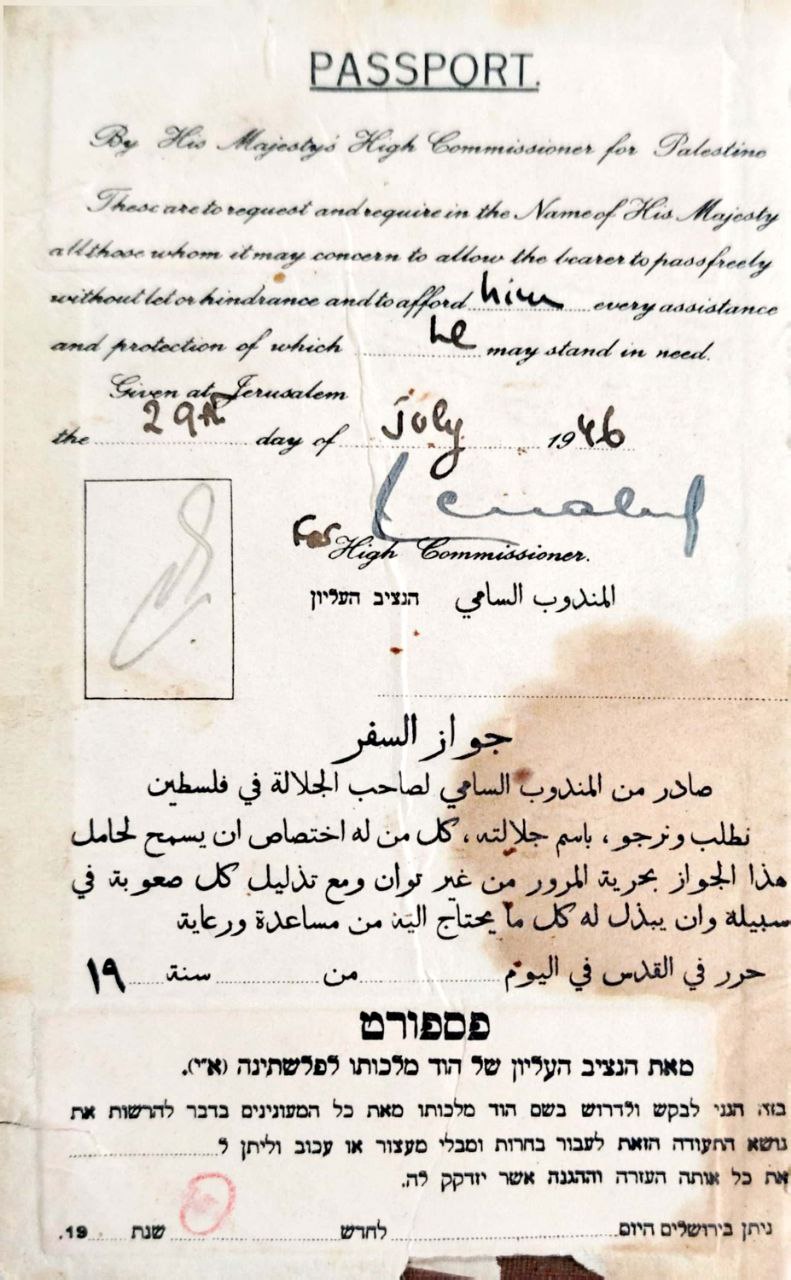 PASSPORT.
By His Majesty's High Commissioner for Palestine
These are to request and require in the Name of His Majesty
all those whom it may concern to allow the bearer to pass freely
without let or hindrance and to afford him every assistance
and protection of which he may stand in need.
Given at Jerusalem
the 29th day of July 1946
For High Commissioner.
הנציב העליון المندوب السامي
جواز السفر
صادر من المندوب السامي لصاحب الجلالة في فلسطين
نطلب ونرجو، باسم جلالته، كل من له اختصاص ان يسمح لحامل
هذا الجواز بحرية المرور من غير توان ومع تذليل كل صعوبة في
سبيلة وان يبذل له كل ما يحتاج اليه من مساعدة ورعاية
حرر في القدس في اليوم ........ من ........ سنة ..... ١٩
פספורט
מאת הנציב העליון של הוד מלכותו לפלשתינה (א״י).
בזה הנני לבקש ולדרוש בשם הוד מלכותו מאת כל המעונינים בדבר להרשות את
נושא התעודה הזאת לעבור בחרות ומבלי מעצור או עכוב וליתן ל
את כל אותה העזרה וההגנה אשר יזדקק לה.
ניתן בירושלים היום ........ לחדש ........ שנת ..... 19.